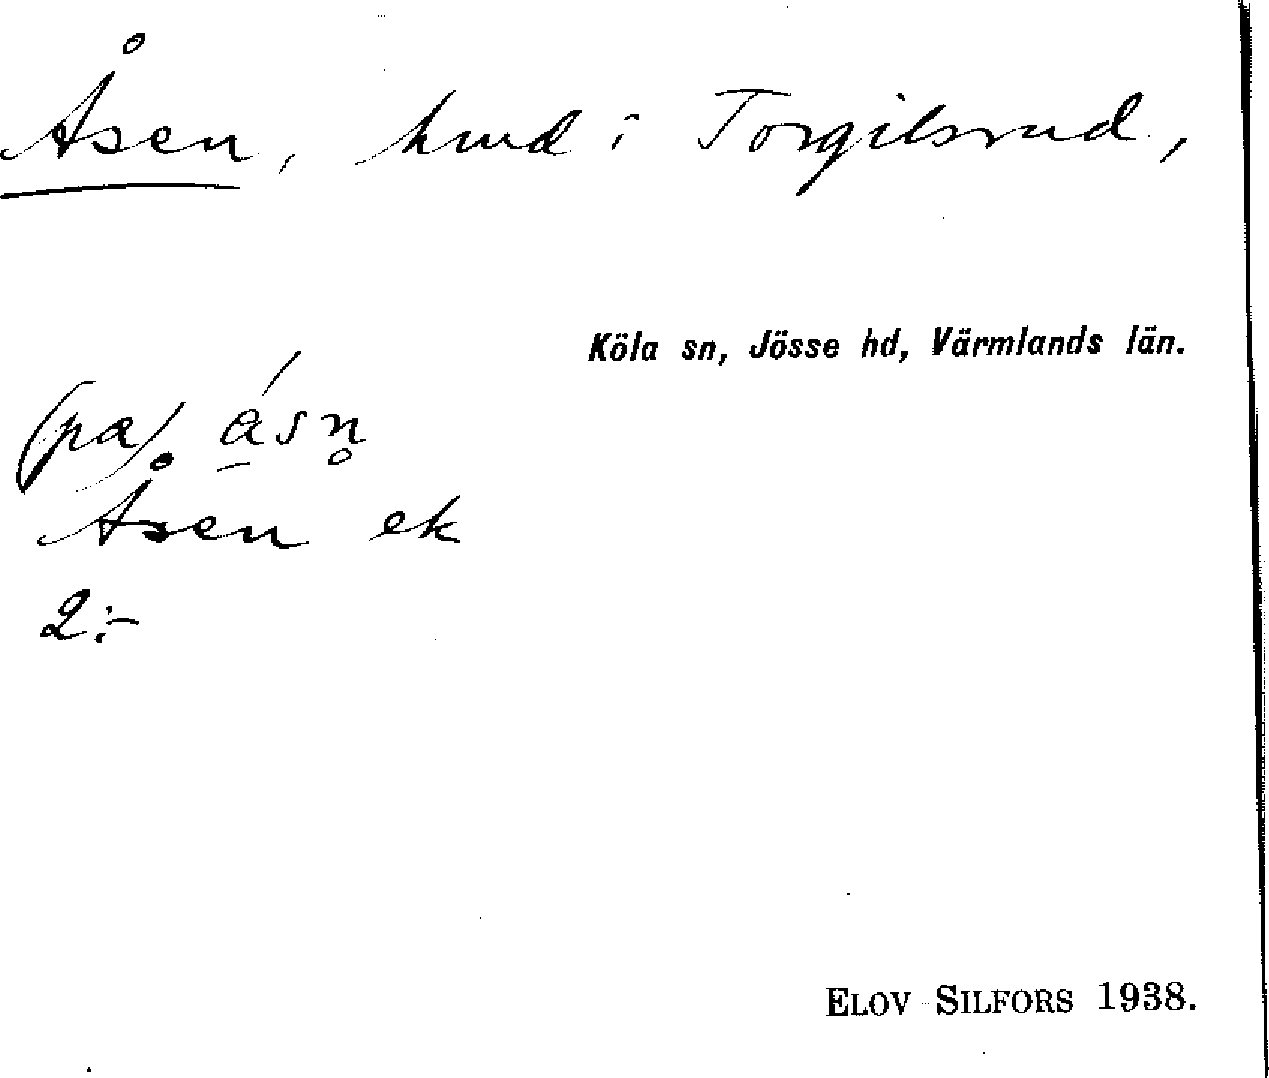 Åsen, hmd i Torgilsrud,
Köla sn, Jösse hd, Värmlands län.
(pa) a̱´sn̥
Åsen ek
2:-
ELOV SILFORS 1938.